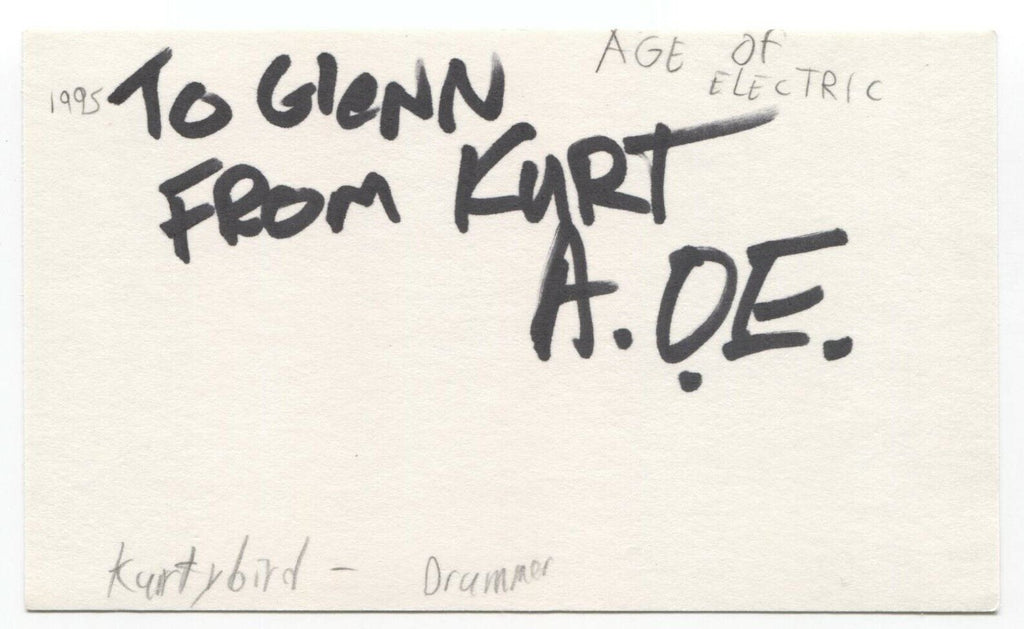 AGE Of
ELECTRIC
1995 To GlenN
FROM KURT
A.O.E.
Kurtybird - Drummer